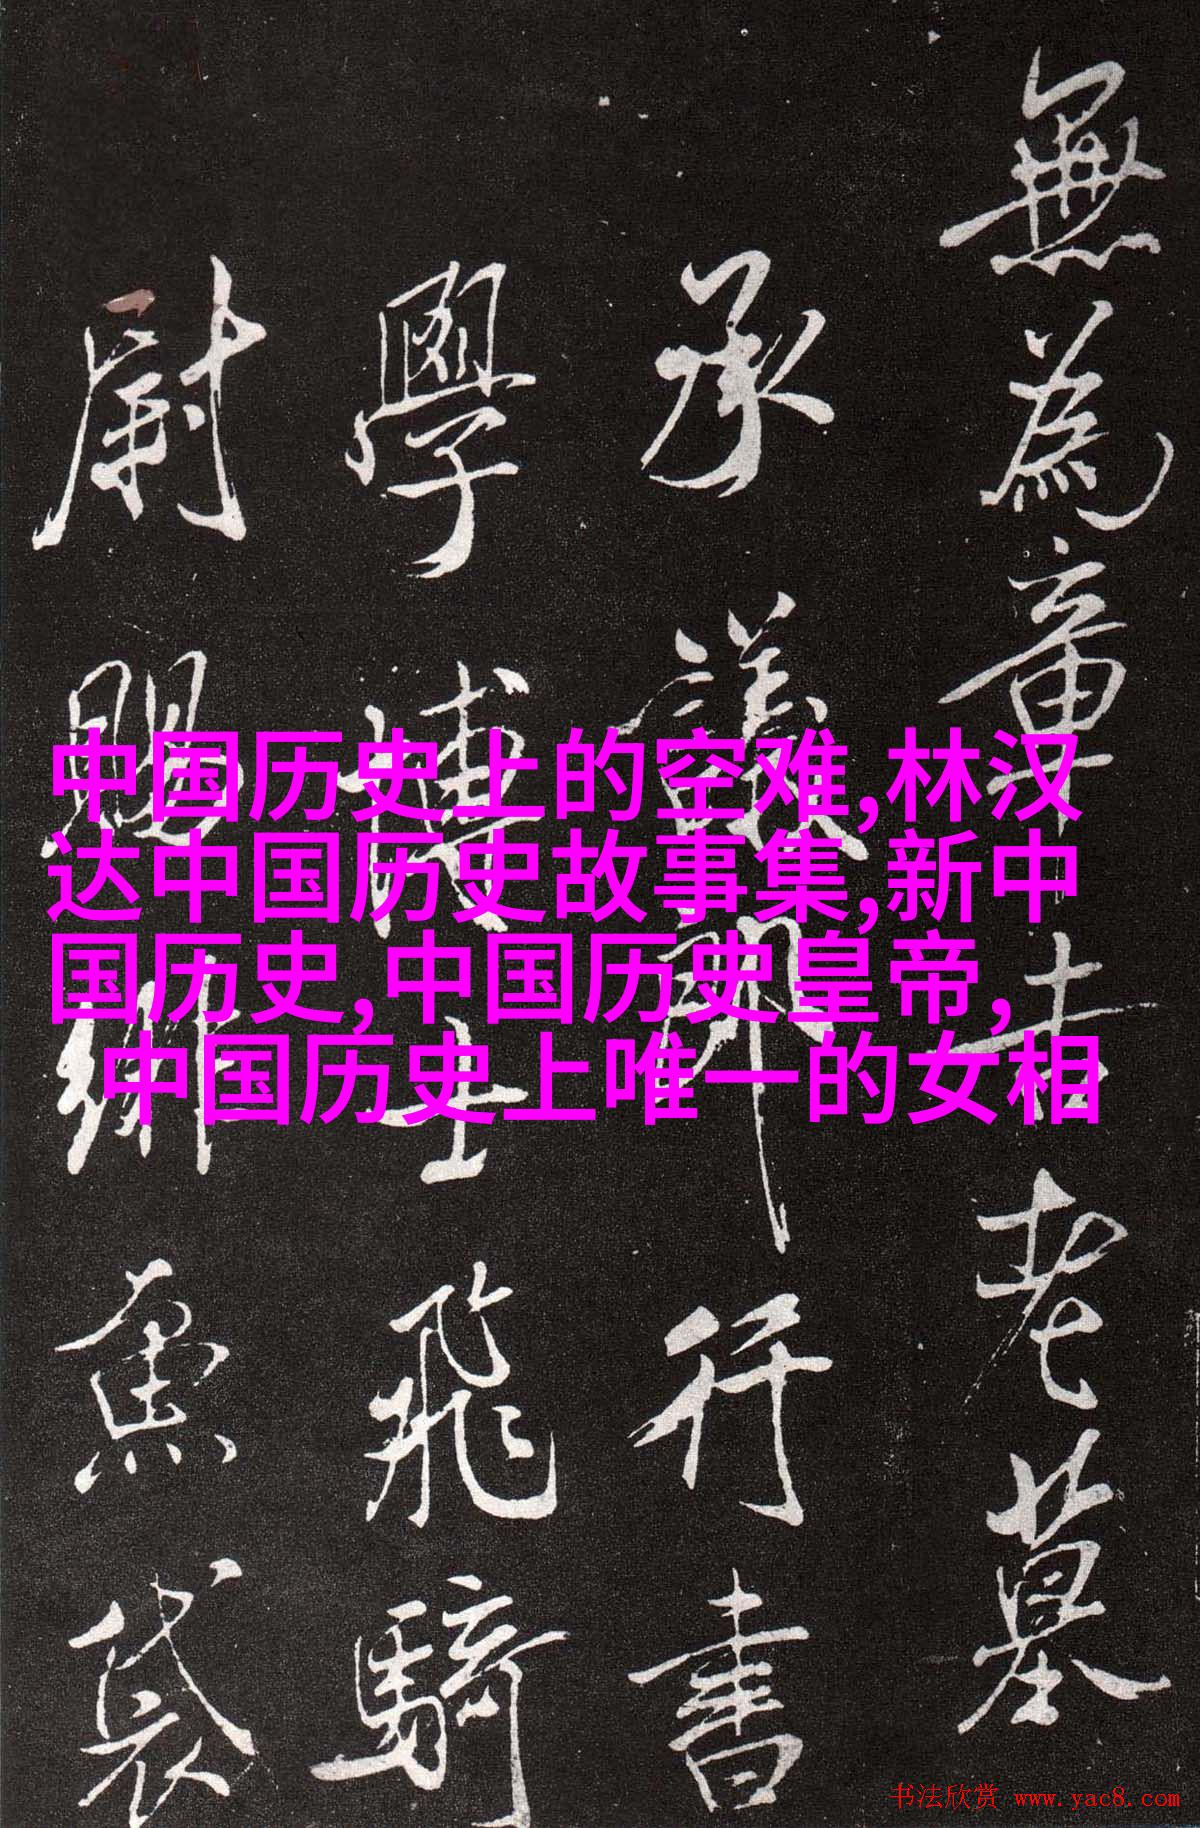 無為章吉老墓
承議郎行書
學博士飛騎
尉賜緋魚袋
中国历史上的空难,林汉
达中国历史故事集,新中
国历史,中国历史皇帝,
中国历史上唯一的女相
书法欣赏 www.yac8.com